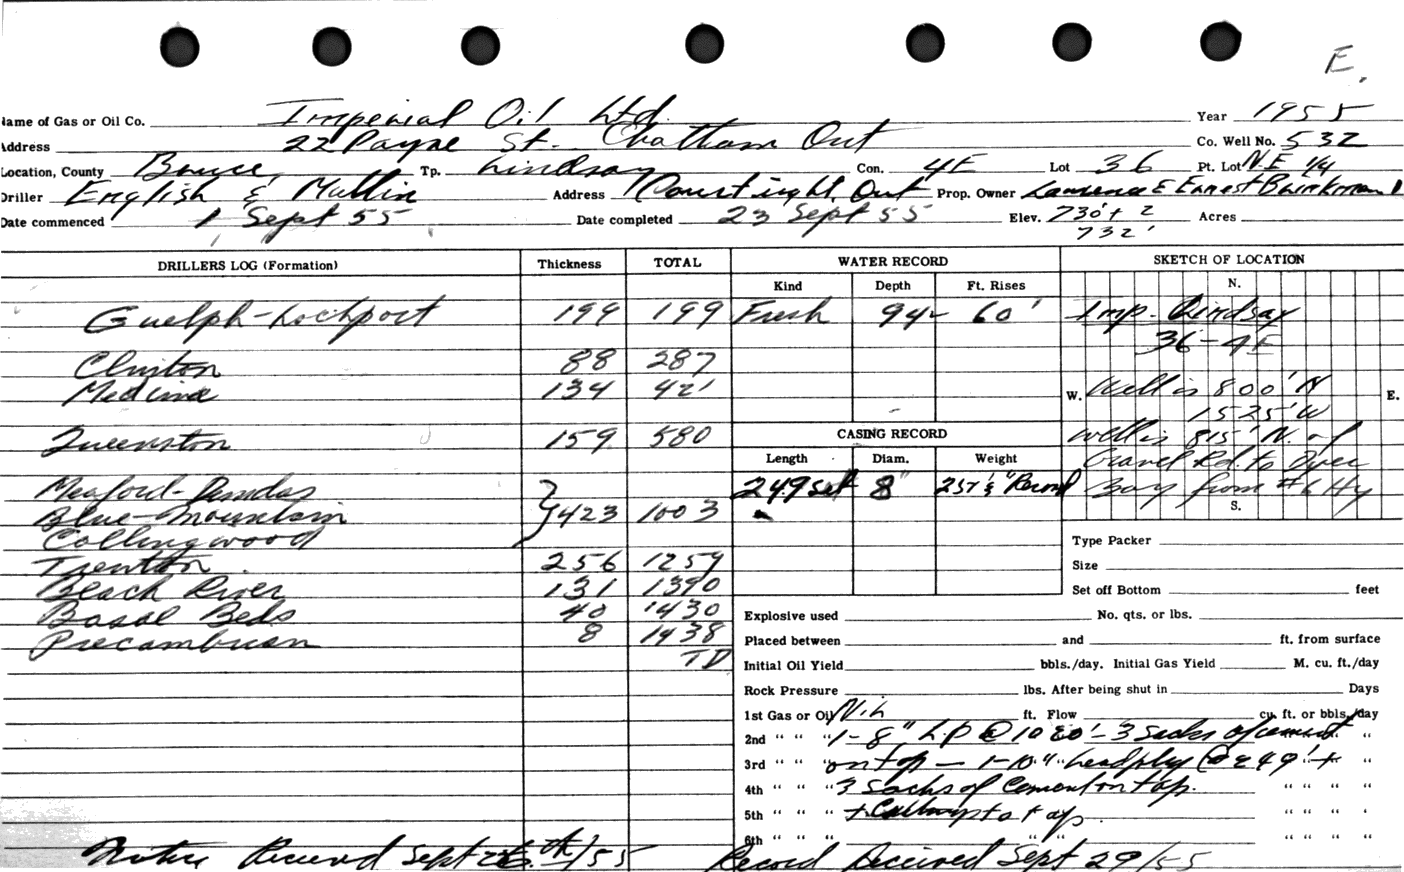 E.
Name of Gas or Oil Co. Imperial Oil Ltd. Year 1955
Address 22 Payne St. Chatham Ont Co. Well No. 532
Location, County Bruce Tp. Lindsay Con. 4E Lot 36 Pt. Lot N.E. 1/4
Driller English & Mullin Address Courtright, Ont Prop. Owner Lawrence & Earnest Brinkman
Date commenced 1 Sept 55 Date completed 23 Sept 55 Elev. 730' + 2 Acres
732'
DRILLERS LOG (Formation) Thickness TOTAL WATER RECORD SKETCH OF LOCATION
Kind Depth Ft. Rises N.
Guelph-Lockport 199 199 Fresh 94- 60' Imp. Lindsay
36-4E
Clinton 88 287
Medina 134 421 W. Well is 800' N E.
1525' W
Queenston 159 580 CASING RECORD Well is 815' N. of
Length Diam. Weight Gravel Rd. to Dyer
Meaford-Dundas 249 set 8" Bay from #6 Hy
Blue-Mountain 423 1003 S.
Collingwood Type Packer
Trenton 256 1259 Size
Black River 131 1390 Set off Bottom feet
Basal Beds 40 1430 Explosive used No. qts. or lbs.
Precambrian 8 1438 Placed between and ft. from surface
TD Initial Oil Yield bbls./day. Initial Gas Yield M. cu. ft./day
Rock Pressure lbs. After being shut in Days
1st Gas or Oil Nil ft. Flow cu. ft. or bbls./day
2nd " " " 1-8" L.P @ - 3 sacks of cement "
3rd " " " on top - 1-10" @ 249' + "
4th " " " 3 sacks of Cement on top. " " " "
5th " " " + to top " " " "
6th " " " " " " "
Notice Received Sept 26th/55 Record Received Sept 29/55